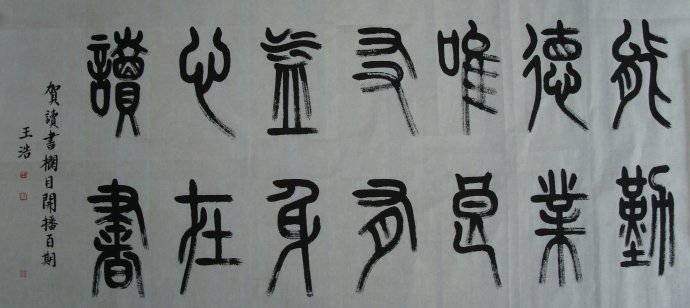 能勤
德業
唯良
友有
益身
心在
讀書
賀讀書欄目開播百期
王浩